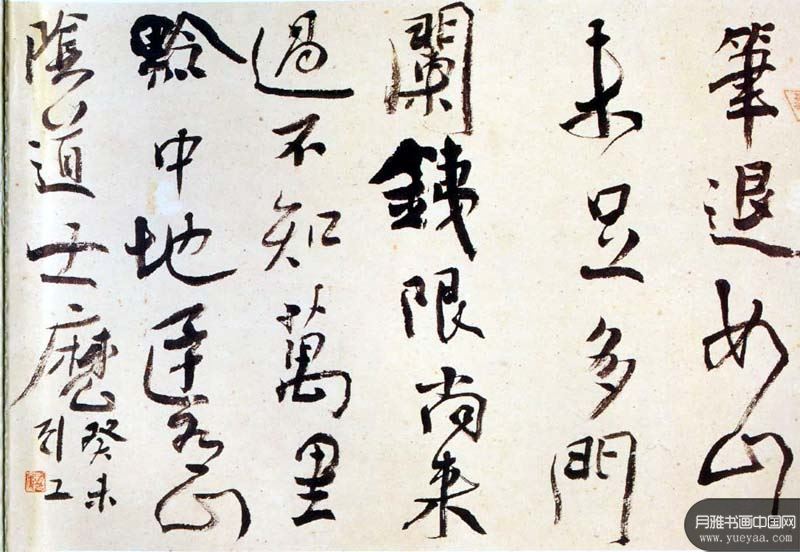 筆退如山
未足多門
闌鐵限尚来
過不知萬里
黔中地有山
陰道士麽
癸未
月雅书画中国网
www.yueyaa.com